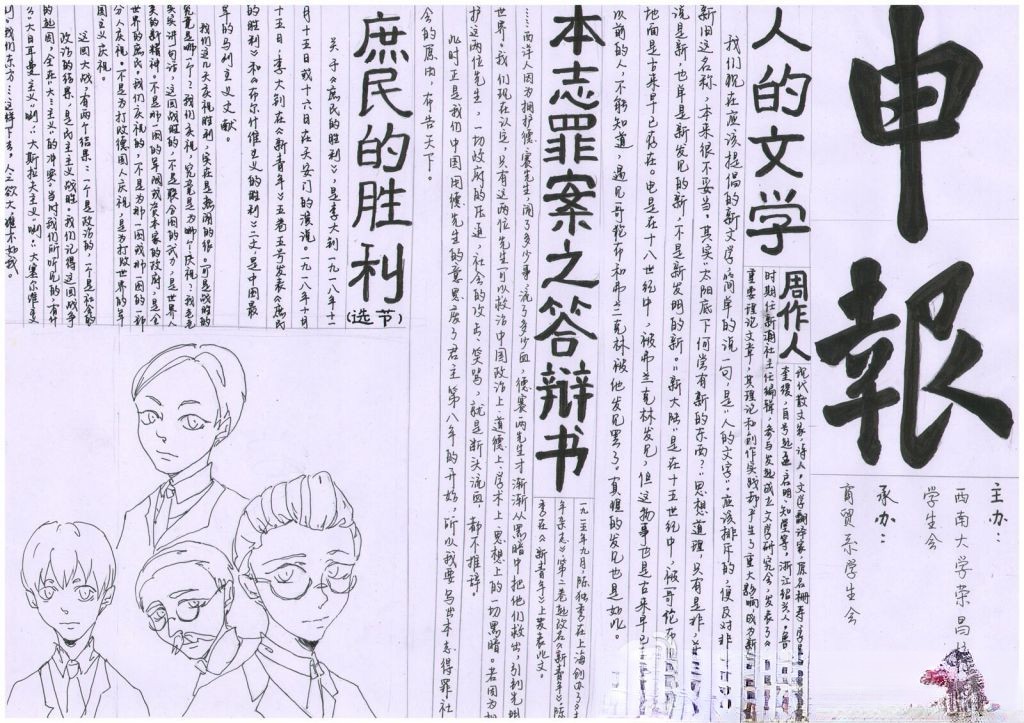 申報
主办：
西南大学荣昌
学生会
承办：
商贸系学生会
人的文学
周作人
现代散文家，诗人，文学翻译家，原名櫆寿，字星
时期任新潮社主任编辑，参与发起成立文学研究会，发表了《
重要理论文章，其理论和创作实践都产生了重大影响成为新
我们现在应该提倡的新文学，简单的说一句，是"人的文学"。应该排斥的，便是反对非
新旧这名称，本来很不妥当，其实"太阳底下何尝有新的东西？"思想道理，只有是非，
说是新，也单是新发见的新，不是新发明的新。"新大陆"是在十五世纪中，被哥伦布
地面是古来早已存在。电是在十八世纪中，被弗兰克林发见，但这物事也是古来早已
以前的人，不能知道，遇见哥伦布和弗兰克林才被他发见罢了。真理的发见也是如此。
本志罪案之答辩书
一九一五年九月，陈独秀在上海创办了《青
年杂志》，第二卷起改名《新青年》，陈
秀在《新青年》上发表此文。
……西洋人因为拥护德赛先生，闹了多少事，流了多少血，德赛两先生才渐渐从黑暗中把他们救出，引到光明
世界。我们现在认定，只有这两位先生可以救治中国政治上、道德上、学术上、思想上的一切黑暗。若因为拥
护这两位先生，一切政府的压迫，社会的攻击、笑骂，就是断头流血，都不推辞。
此时正是我们中国用德先生的意思废了君主第八年的开始，所以我要写出本志得罪社
会的原由，布告天下。
庶民的胜利
(选节)
关于《庶民的胜利》，是李大钊一九一八年十一
月十五日或十六日在天安门的演说。一九一八年十月
十五日，李大钊在《新青年》五卷五号发表《庶民
的胜利》和《布尔什维主义的胜利》二文，是中国最
早的马列主义文献。
我们这几天庆祝战胜，实在是热闹的很。可是战胜的
究竟是哪一个？我们庆祝，究竟是为哪个庆祝？我老老
实实讲一句话，这回战胜的，不是联合国的武力，是世界人
类的新精神。不是那一国的军阀或资本家的政府，是全
世界的庶民。我们庆祝，不是为那一国或那一国的一部
分人庆祝，不是为打败德国人庆祝，是为打败世界的军
国主义庆祝。
这回大战，有两个结果：一个是政治的，一个是社会的
政治的结果，是民主主义战胜。我们记得这回战争
的起因，全在"大……主义"的冲突。当时我们所听见的，有什
么"大日耳曼主义"咧，"大斯拉夫主义"咧，"大塞尔维主义